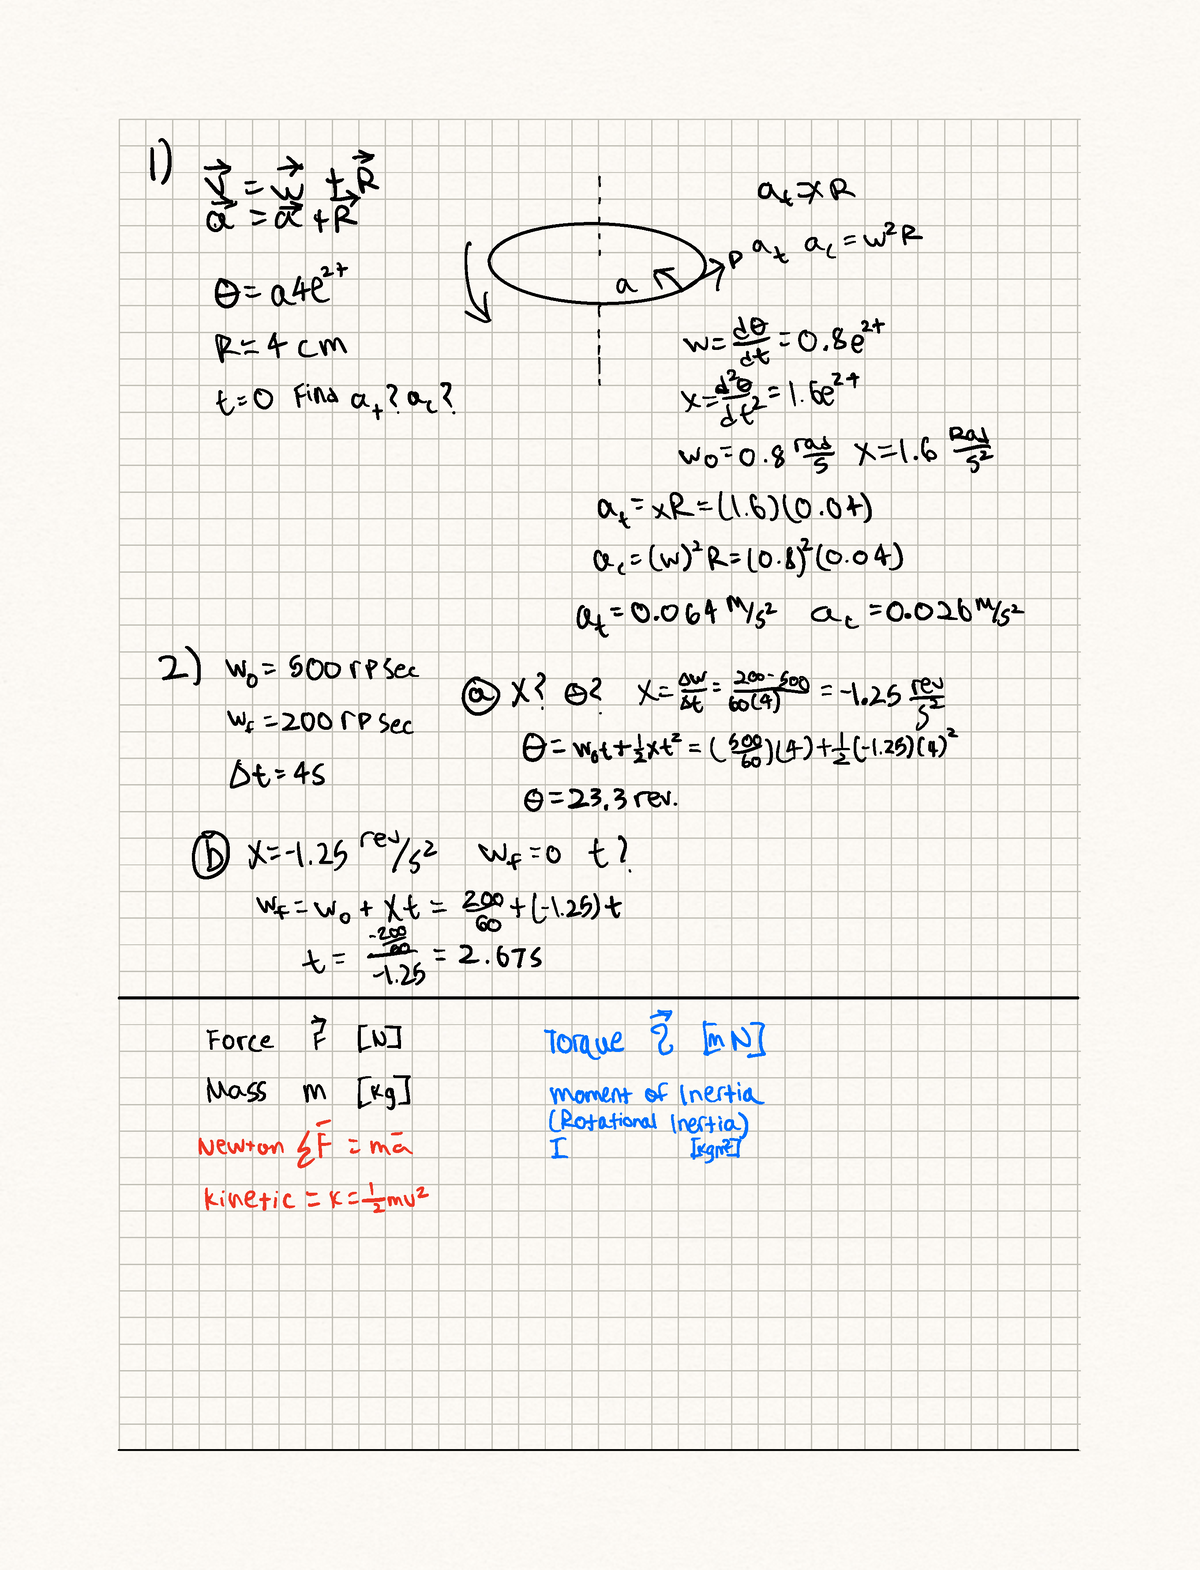 1)
v⃗ = w⃗ + R⃗
a⃗ = a⃗ + R⃗
θ = a4e^2t
R = 4 cm
t=0 Find a_t? a_c?
a
P a_t a_c = w²R
a_t = xR
w = dθ/dt = 0.8e^2t
x = d²θ/dt² = 1.6e^2t
w0 = 0.8 rad/s x = 1.6 Rad/s²
a_t = xR = (1.6)(0.04)
a_c = (w)²R = (0.8)²(0.04)
a_t = 0.064 m/s² a_c = 0.026 m/s²
2) w₀ = 500 rp sec
w_f = 200 rp sec
Δt = 4s
ⓐ x? θ? x = Δw/Δt = 200-500/60(4) = -1.25 rev/s²
θ = w₀t + ½xt² = (500/60)(4) + ½(-1.25)(4)²
θ = 23.3 rev.
ⓑ x = -1.25 rev/s² w_f = 0 t?
w_f = w₀ + xt = 200/60 + (-1.25)t
t = -200/60/-1.25 = 2.67s
Force F⃗ [N]
Mass m [kg]
Newton ΣF̄ = mā
kinetic = K = ½mv²
Torque τ⃗ [m N]
moment of Inertia
(Rotational Inertia)
I [kgm²]